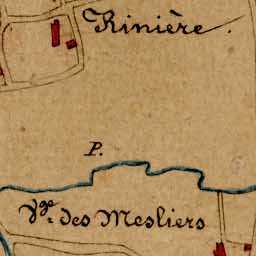 Rinière.
P.
Vge. des Mesliers